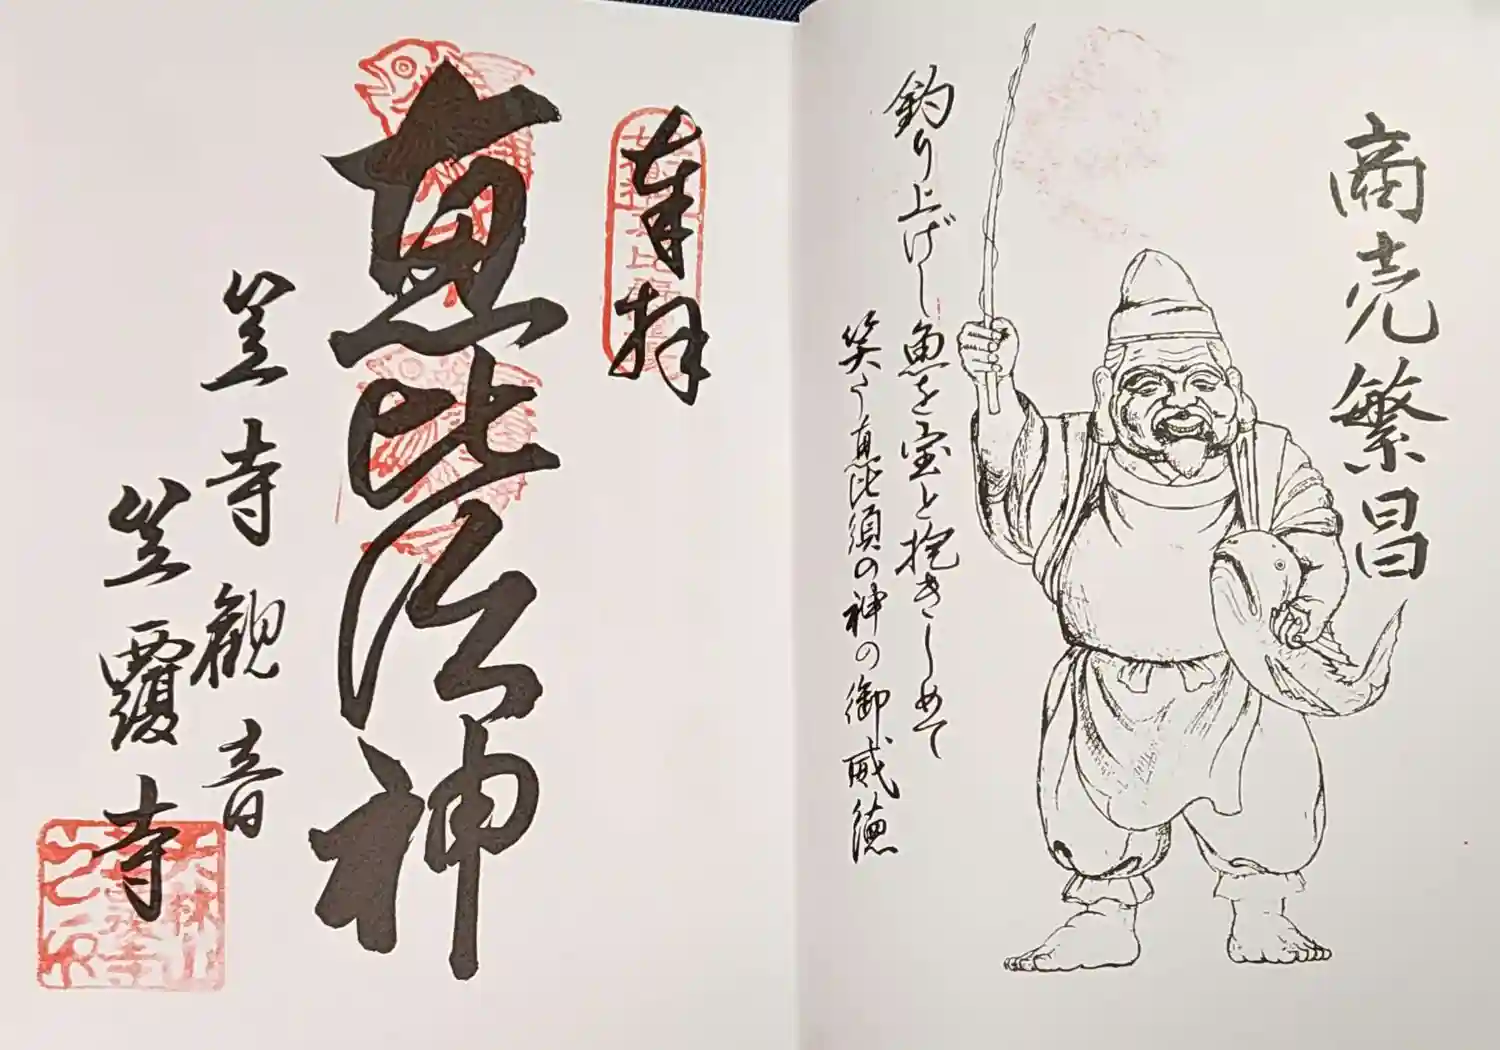 商売繁昌
釣り上げし魚を宝と抱きしめて
笑う恵比須の神の御威徳
奉拝
恵比須神
笠寺観音
笠覆寺